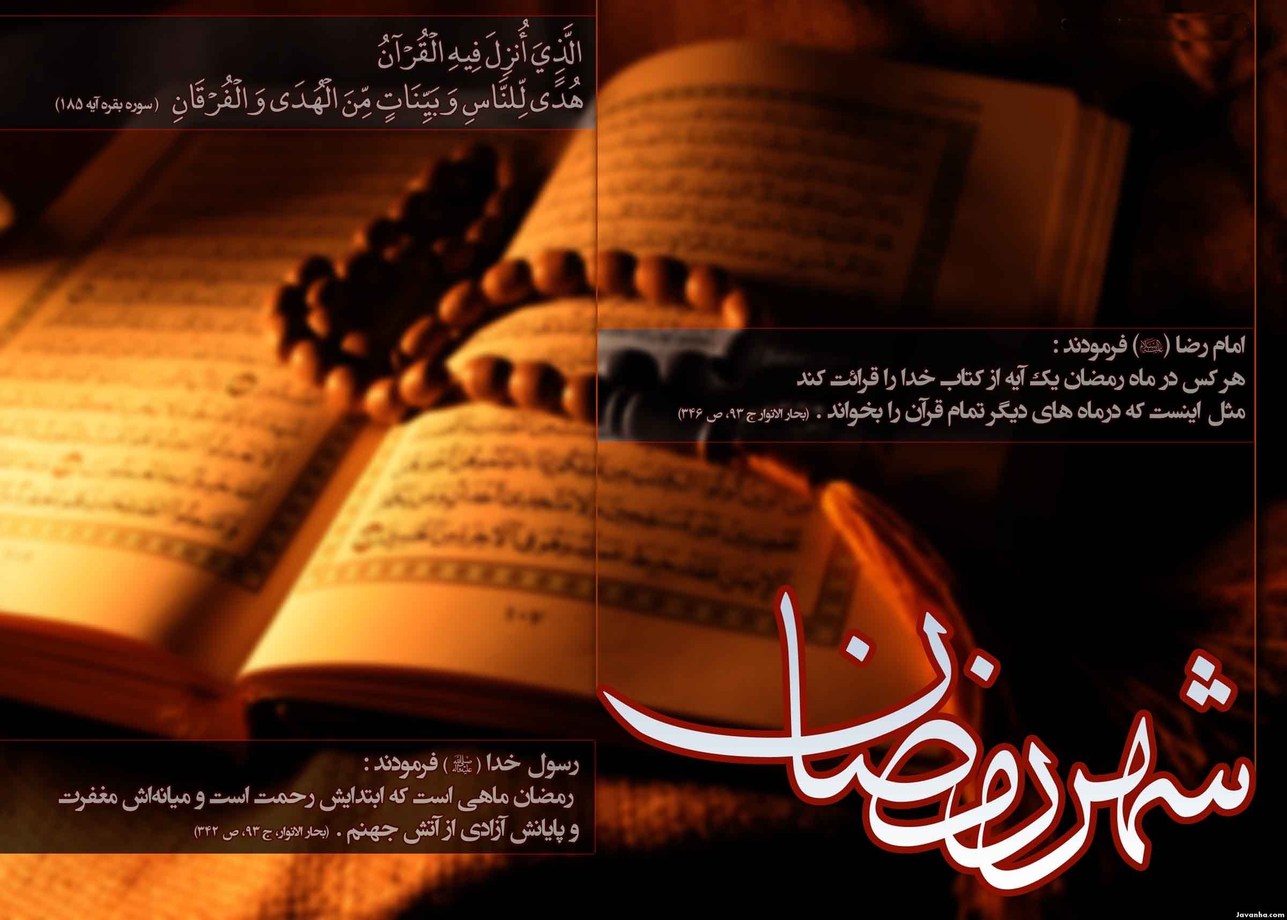 الَّذِيَ أُنزِلَ فِيهِ الْقُرْآنُ
هُدًى لِّلنَّاسِ وَ بَيِّنَاتٍ مِّنَ الْهُدَى وَ الْفُرْقَانِ (سوره بقره آیه ۱۸۵)
امام رضا (علیه‌السلام) فرمودند :
هر کس در ماه رمضان یک آیه از کتاب خدا را قرائت کند
مثل اینست که درماه های دیگر تمام قرآن را بخواند . (بحار الانوار ج ۹۳، ص ۳۴۶)
شهر رمضان
رسول خدا (ﷺ) فرمودند :
رمضان ماهی است که ابتدایش رحمت است و میانه‌اش مغفرت
و پایانش آزادی از آتش جهنم . (بحار الانوار، ج ۹۳، ص ۳۴۲)
Javanha.com